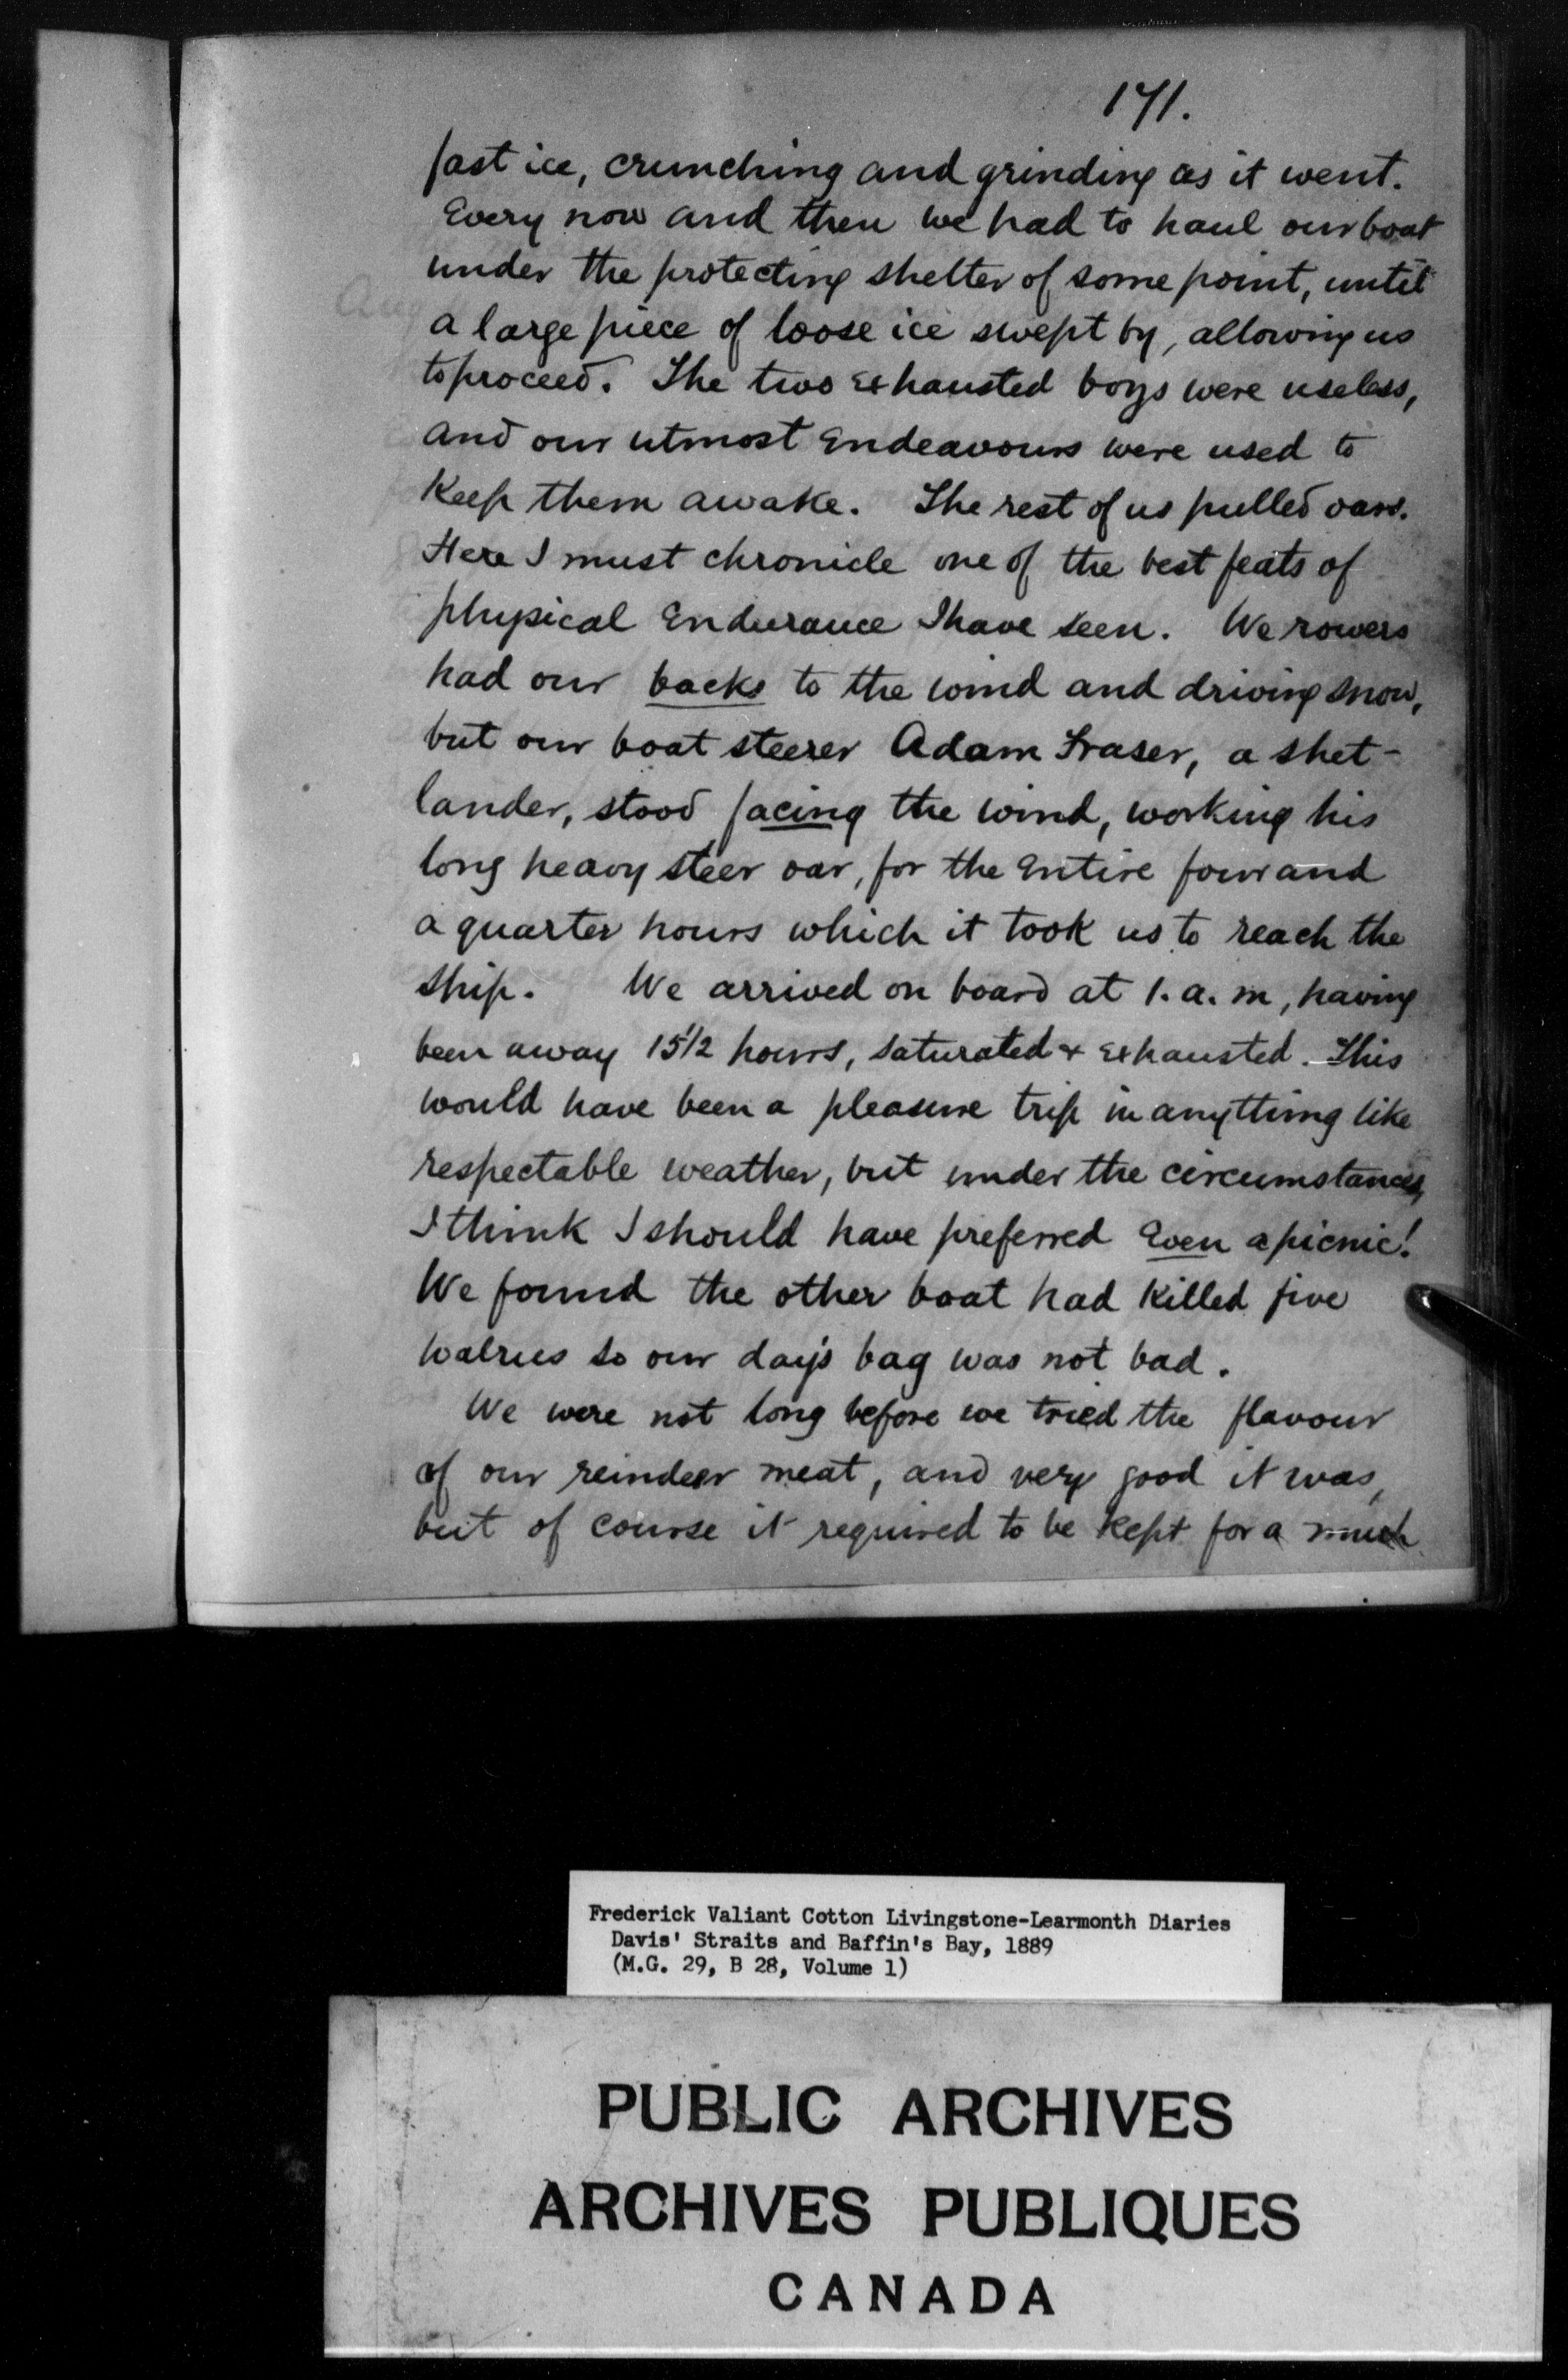 171.
fast ice, crunching and grinding as it went.
Every now and then we had to haul our boat
under the protecting shelter of some point, until
a large piece of loose ice swept by, allowing us
to proceed. The two exhausted boys were useless,
and our utmost Endeavours were used to
Keep them awake. The rest of us pulled oars.
Here I must chronicle one of the best feats of
physical Endurance I have seen. We rowers
had our backs to the wind and driving snow,
but our boat steerer Adam Fraser, a shet-
lander, stood facing the wind, working his
long heavy steer oar, for the Entire four and
a quarter hours which it took us to reach the
ship. We arrived on board at 1. a. m, having
been away 15 1/2 hours, saturated & exhausted. This
would have been a pleasure trip in anything like
respectable weather, but under the circumstances,
I think I should have preferred Even a picnic!
We found the other boat had Killed five
walrus so our day's bag was not bad.
We were not long before we tried the flavour
of our reindeer meat, and very good it was,
but of course it required to be Kept for a much
Frederick Valiant Cotton Livingstone-Learmonth Diaries
Davis' Straits and Baffin's Bay, 1889
(M.G. 29, B 28, Volume 1)
PUBLIC ARCHIVES
ARCHIVES PUBLIQUES
CANADA